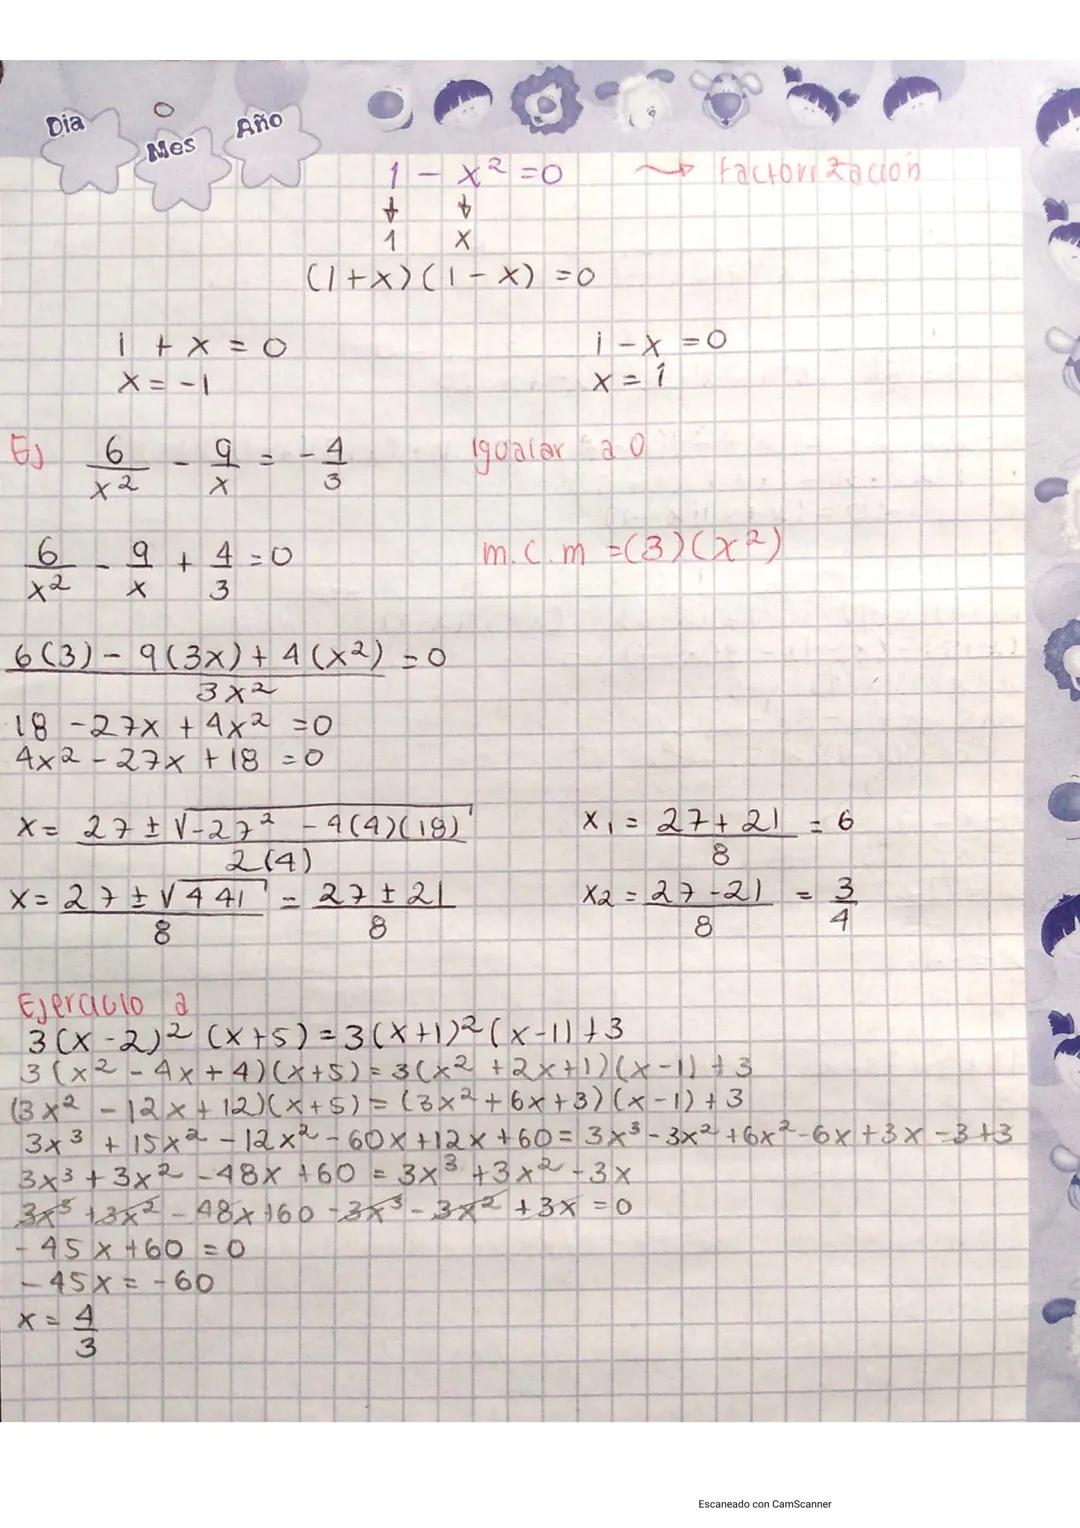 Dia Mes Año
1 - x² = 0 ⇝ Factorización
↓ ↓
1 x
(1+x)(1-x) = 0
1 + x = 0 1 - x = 0
x = -1 x = 1
Ej 6/x² - 9/x = -4/3 Igualar a 0
6/x² - 9/x + 4/3 = 0 m.c.m = (3)(x²)
6(3) - 9(3x) + 4(x²) / 3x² = 0
18 - 27x + 4x² = 0
4x² - 27x + 18 = 0
x = 27 ± √-27² - 4(4)(18) / 2(4) x₁ = 27 + 21 / 8 = 6
x = 27 ± √441 / 8 = 27 ± 21 / 8 x2 = 27 - 21 / 8 = 3/4
Ejercicio a
3(x-2)² (x+5) = 3(x+1)² (x-1) + 3
3(x² - 4x + 4)(x+5) = 3(x² + 2x + 1)(x-1) + 3
(3x² - 12x + 12)(x+5) = (3x² + 6x + 3)(x-1) + 3
3x³ + 15x² - 12x² - 60x + 12x + 60 = 3x³ - 3x² + 6x² - 6x + 3x - 3 + 3
3x³ + 3x² - 48x + 60 = 3x³ + 3x² - 3x
3x³ + 3x² - 48x + 60 - 3x³ - 3x² + 3x = 0
-45x + 60 = 0
-45x = -60
x = 4/3
Escaneado con CamScanner